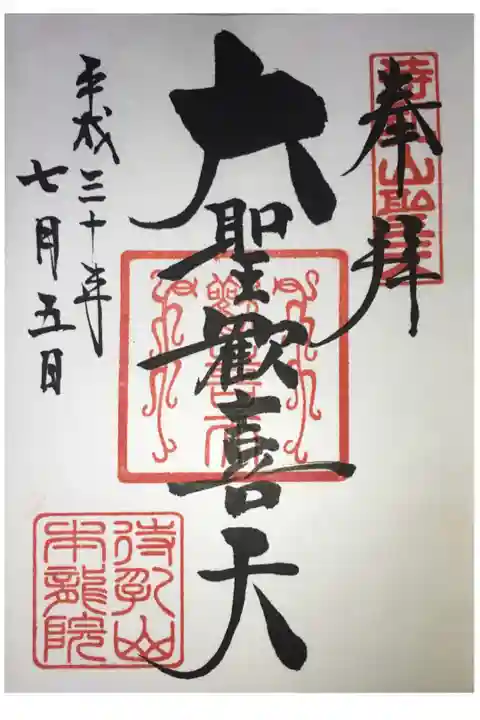 奉拝
待乳山聖天
大聖歓喜天
歓喜天
平成三十年
七月五日
待乳山
本龍院